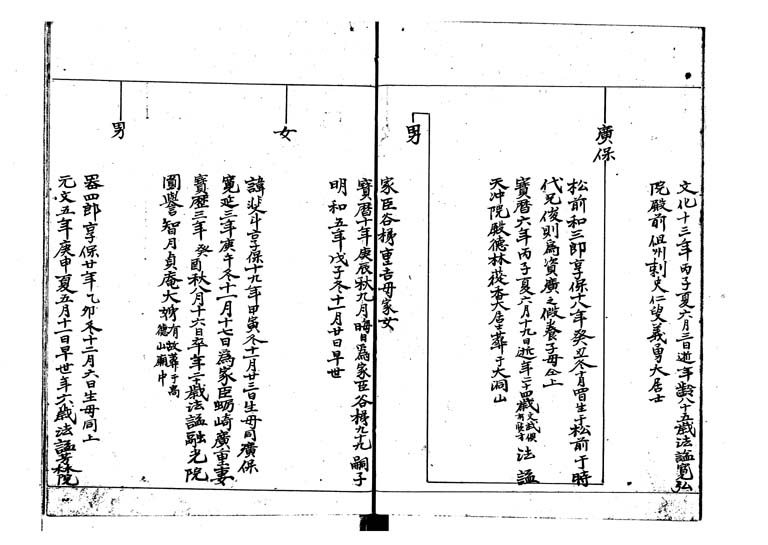 文化十三年丙子夏六月三日逝年齡八十五歲法諡寬弘
院殿前但州刺史仁望義勇大居士
廣保
松前和三郎享保十八年癸丑冬 生于松前于時
代兄俊則爲資廣之假養子母仝上
寶曆六年丙子夏六月十九日逝年二十四歲 法諡
天冲院殿德林 大居士葬于大洞山
男
家臣谷梯重吉母家女
寶曆十年庚辰秋九月晦日爲家臣谷梯九十九嗣子
明和五年戊子冬十一月廿日早世
女
諱 享保十九年甲寅冬十一月廿三日生母同廣保
寬延三年庚午冬十一月十七日爲家臣蛎崎廣重妻
寶曆三年癸酉秋八月十六日卒年二十歲法諡融光院
圓譽智月貞庵大姉有故葬于高
德山廟中
男
器四郎享保廿年乙卯冬十二月六日生母同上
元文五年庚申夏五月十一日早世年六歲法諡芳林院